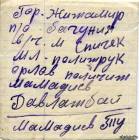 Гор. Житомир
п/о Бачуния
в/ч. м Спичек
Мл. политрук
Орлав получит
Мамадиев
Давлатбай
Мамадиев